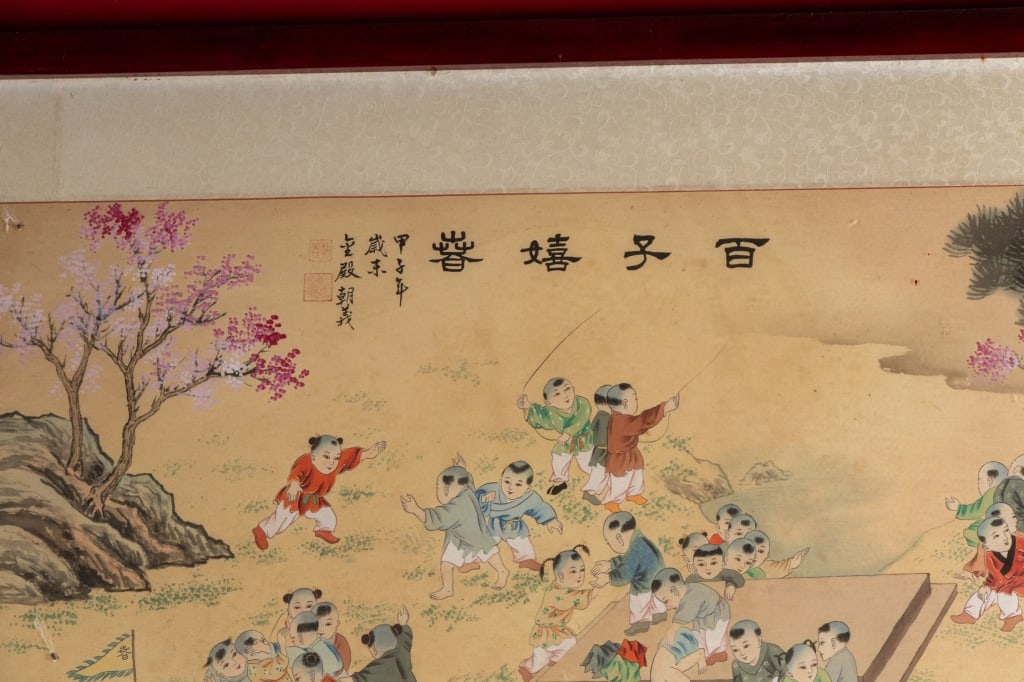 百子嬉萅
甲子年
歲末
金殿朝義
萅